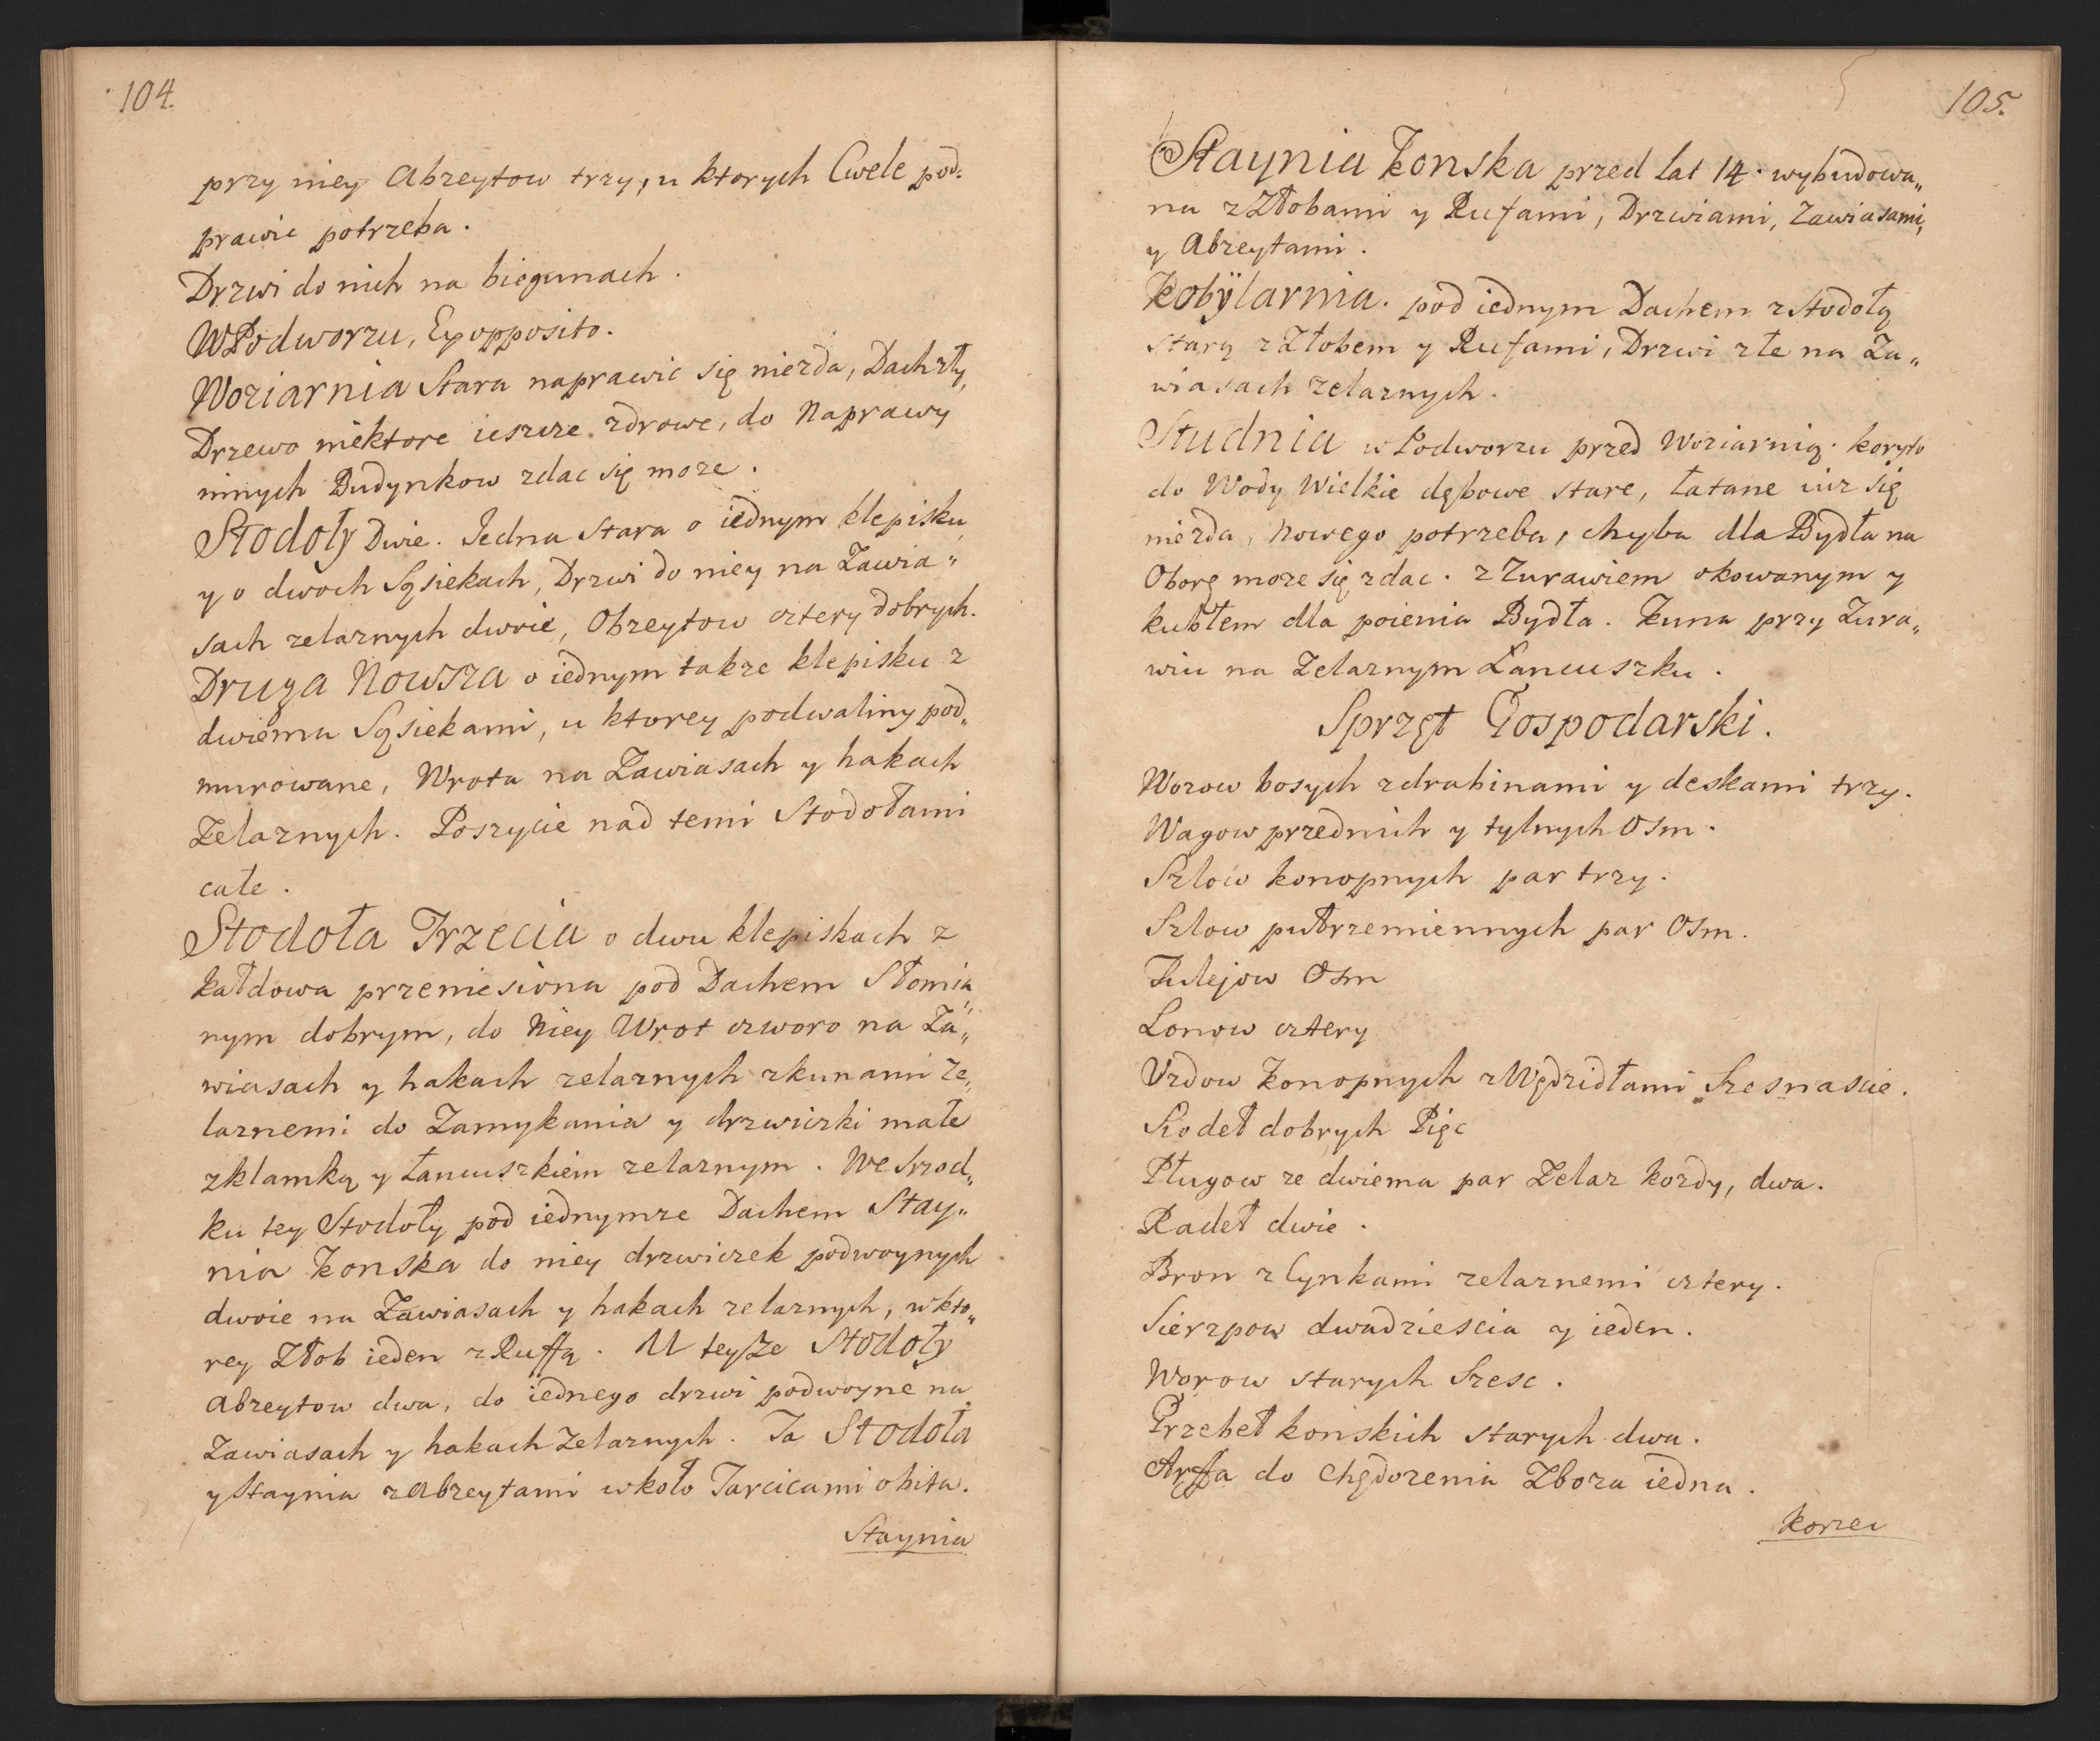 104.
przy niey Abzeytow trzy, u ktorych Cwele pod=
prawic potrzeba.
Drzwi do nich na biegunach.
W Podworzu, Ex opposito.
Woziarnia Stara naprawic się niezda, Dach zły,
Drzewo niektore ieszcze zdrowe, do Naprawy
innych Budynkow zdac się moze.
Stodoły Dwie. Jedna Stara o iednym klepisku
y o dwoch Sąsiekach, Drzwi do niey na Zawia„
sach zelaznych dwoie, Obzeytow cztery dobrych.
Druga Nowsza o iednym takze klepisku z
dwiema Sąsiekami, u ktorey podwaliny pod„
murowane, Wrota na Zawiasach y hakach
Zelaznych. Poszycie nad temi Stodołami
całe.
Stodoła Trzecia o dwu klepiskach z
Kałdowa przeniesiona pod Dachem Słomia„
nym dobrym, do Niey Wrot czworo na Za„
wiasach y hakach zelaznych z kunami ze„
laznemi do Zamykania y drzwiczki małe
z klamką y łancuszkiem zelaznym. We Srzod„
ku tey Stodoły pod iednymze Dachem Stay„
nia Konska do niey drzwiczek podwoynych
dwoie na Zawiasach y hakach zelaznych, w kto„
rey Złob ieden z Ruffą. U teyże Stodoły
Abzeytow dwa, do iednego drzwi podwoyne na
Zawiasach y hakach Zelaznych. Ta Stodoła
y Staynia z Abzeytami w koło Tarcicami obita.
Staynia
105.
Staynia Konska przed lat 14. wybudowa„
na z Złobami y Rufami, Drzwiami, Zawiasami,
y Abzeytami.
Kobÿlarnia. pod iednym Dachem z Stodołą
Starą z Złobem y Rufami, Drzwi złe na Za„
wiasach zelaznych.
Studnia w Podworzu przed Woziarnią. koryto
do Wody Wielkie dębowe stare, łatane iuz się
niezda, Nowego potrzeba, chyba dla Bydła na
Oborę moze się zdac. z Zurawiem okowanym y
kubłem dla poienia Bydła. Kuna przy Zura„
wiu na Zelaznym Łancuszku.
Sprzęt Gospodarski.
Wozow bosych z drabinami y deskami trzy.
Wagow przednich y tylnych Osm.
Szlow konopnych par trzy.
Szlow pułrzemiennych par Osm.
Kulejow Osm
Lonow cztery
Uzdow Konopnych z Wędzidłami Szesnascie.
Siodeł dobrych Pięc
Pługow ze dwiema par Zelaz kozdy, dwa.
Radeł dwie.
Bron z Cynkami zelaznemi cztery.
Sierzpow dwadziescia y ieden.
Worow starych Szesc.
Grzebeł konskich starych dwa.
Arffa do Chędozenia Zboza iedna.
Korzec